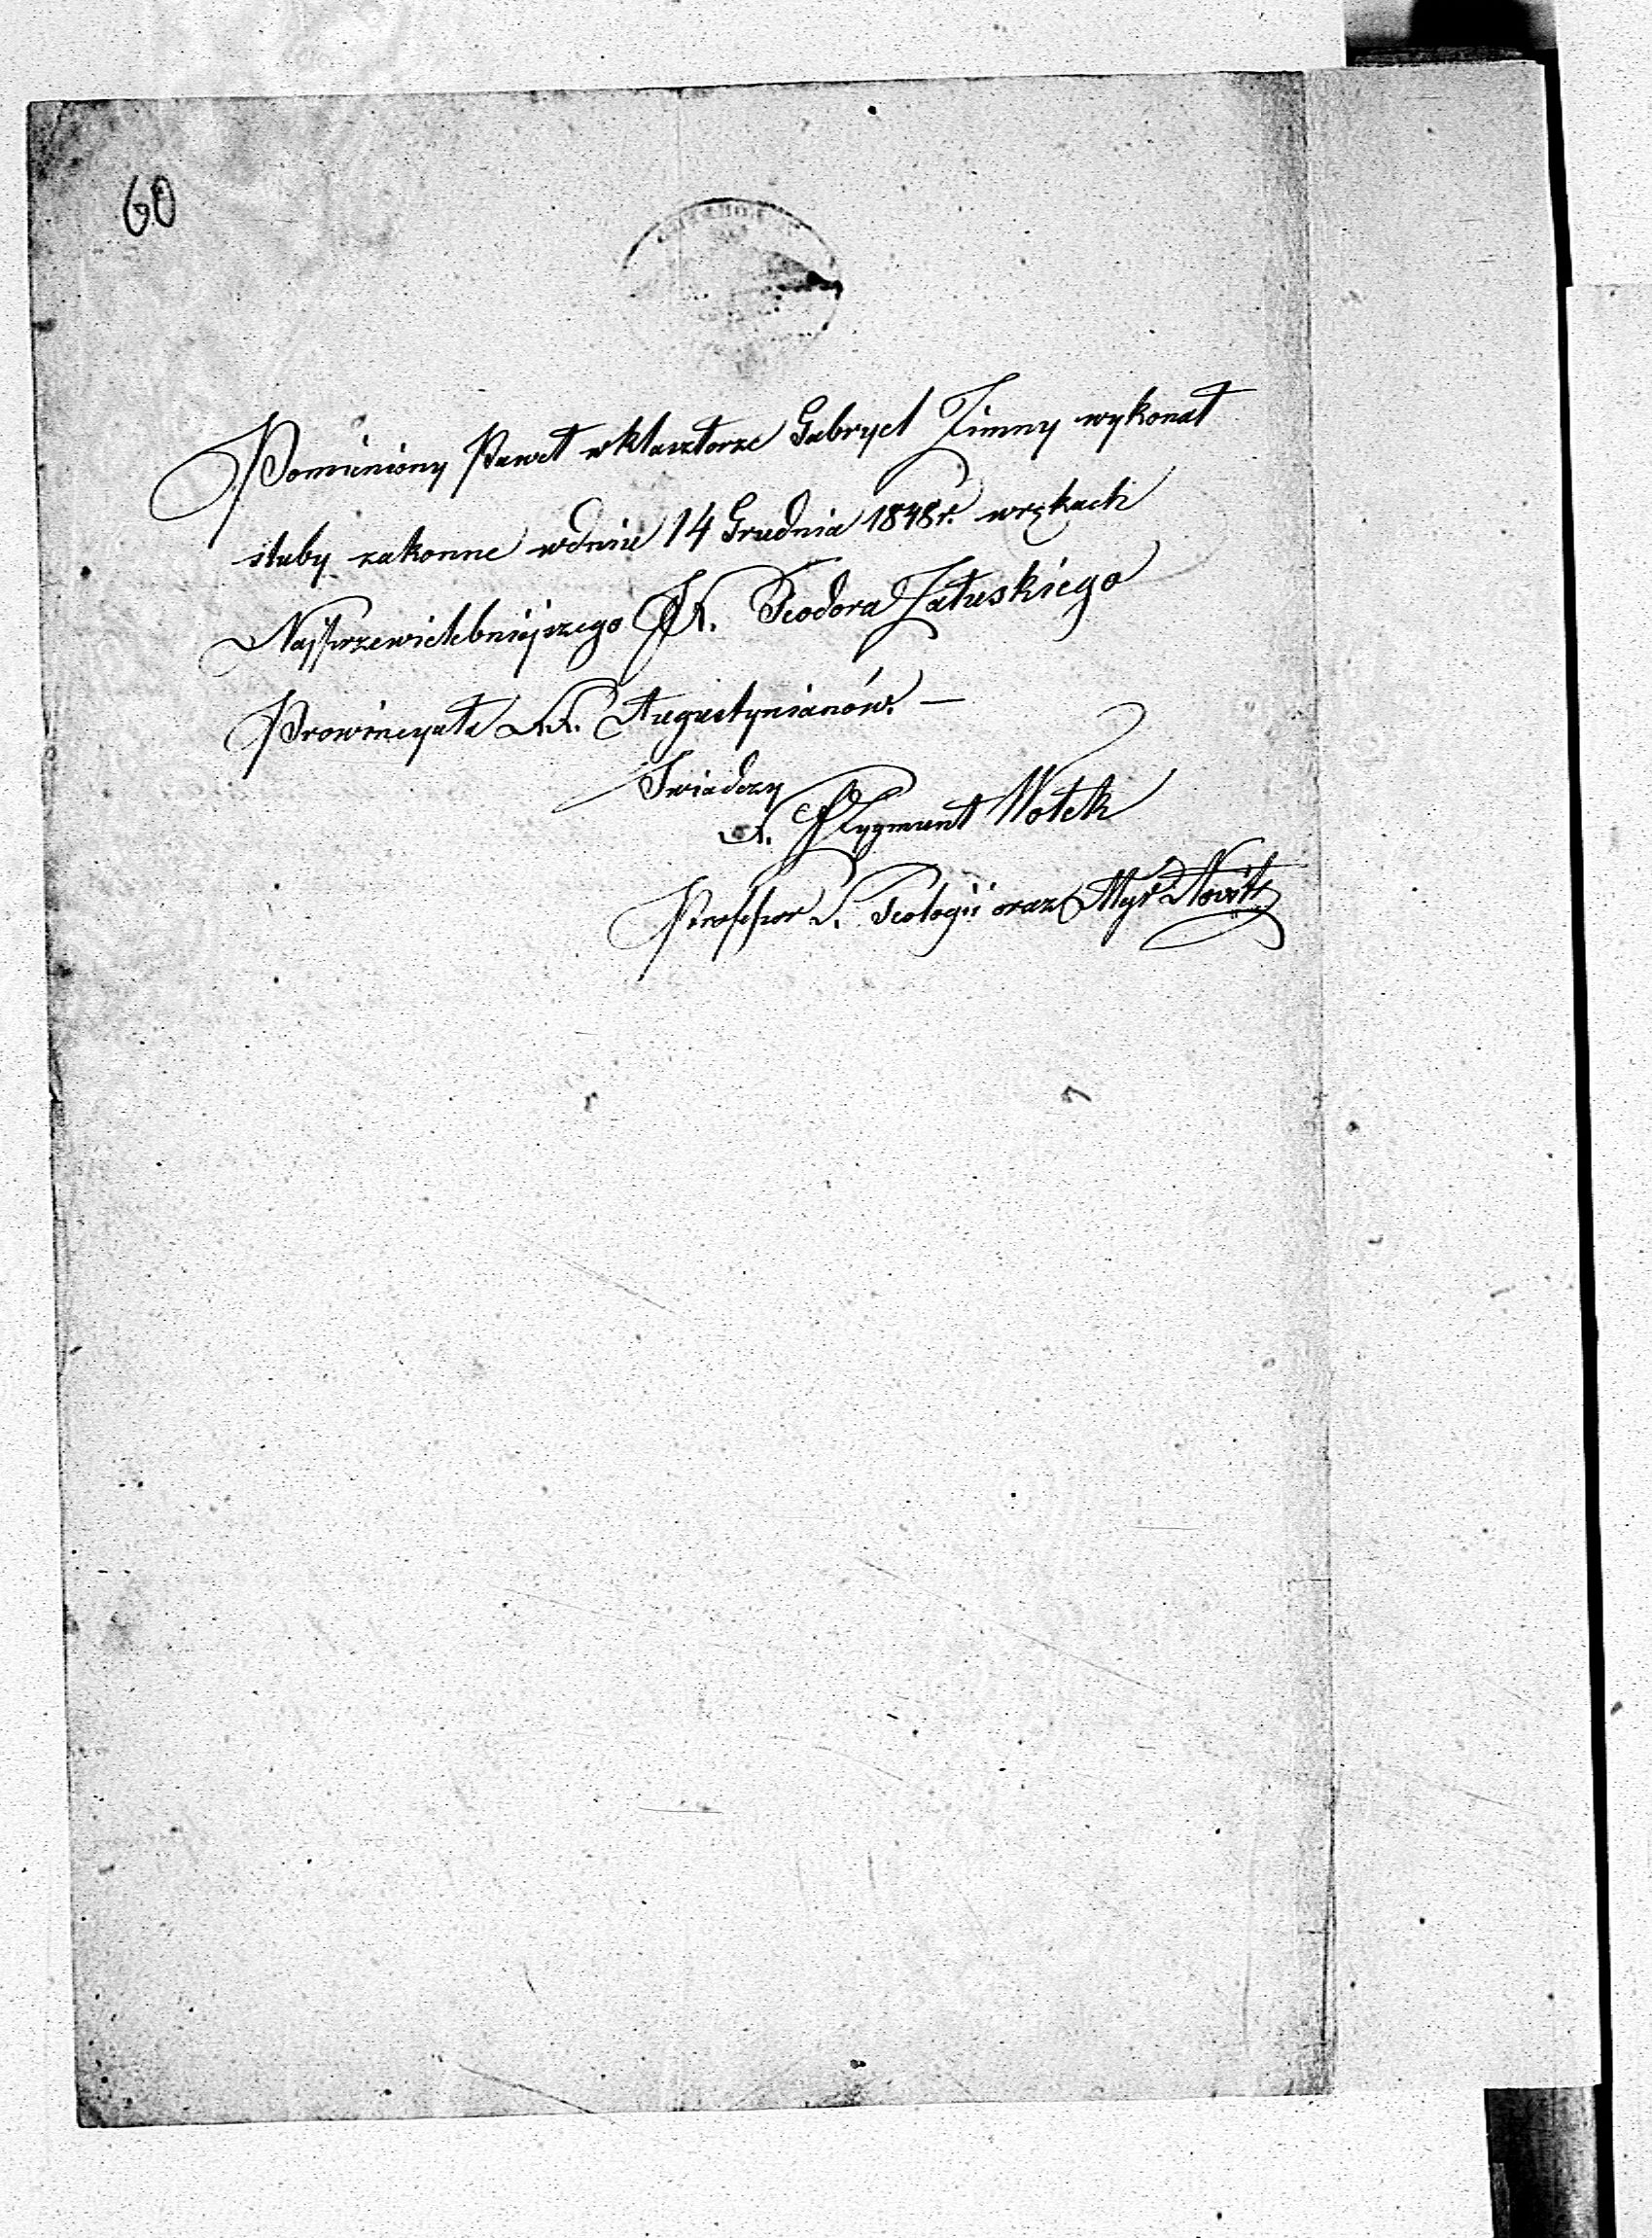 60
Pomieniony Paweł w klasztorze Gabryel Zimny wykonał
śluby zakonne w dniu 14 Grudnia 1848 r. w rękach
Najprzewielebniejszego JX. Teodora Załuskiego
Prowincyała XX. Augustynianów. —
Świadczy
X. Zygmunt Wołek
Professor S. Teologii oraz Mgr Nowic.